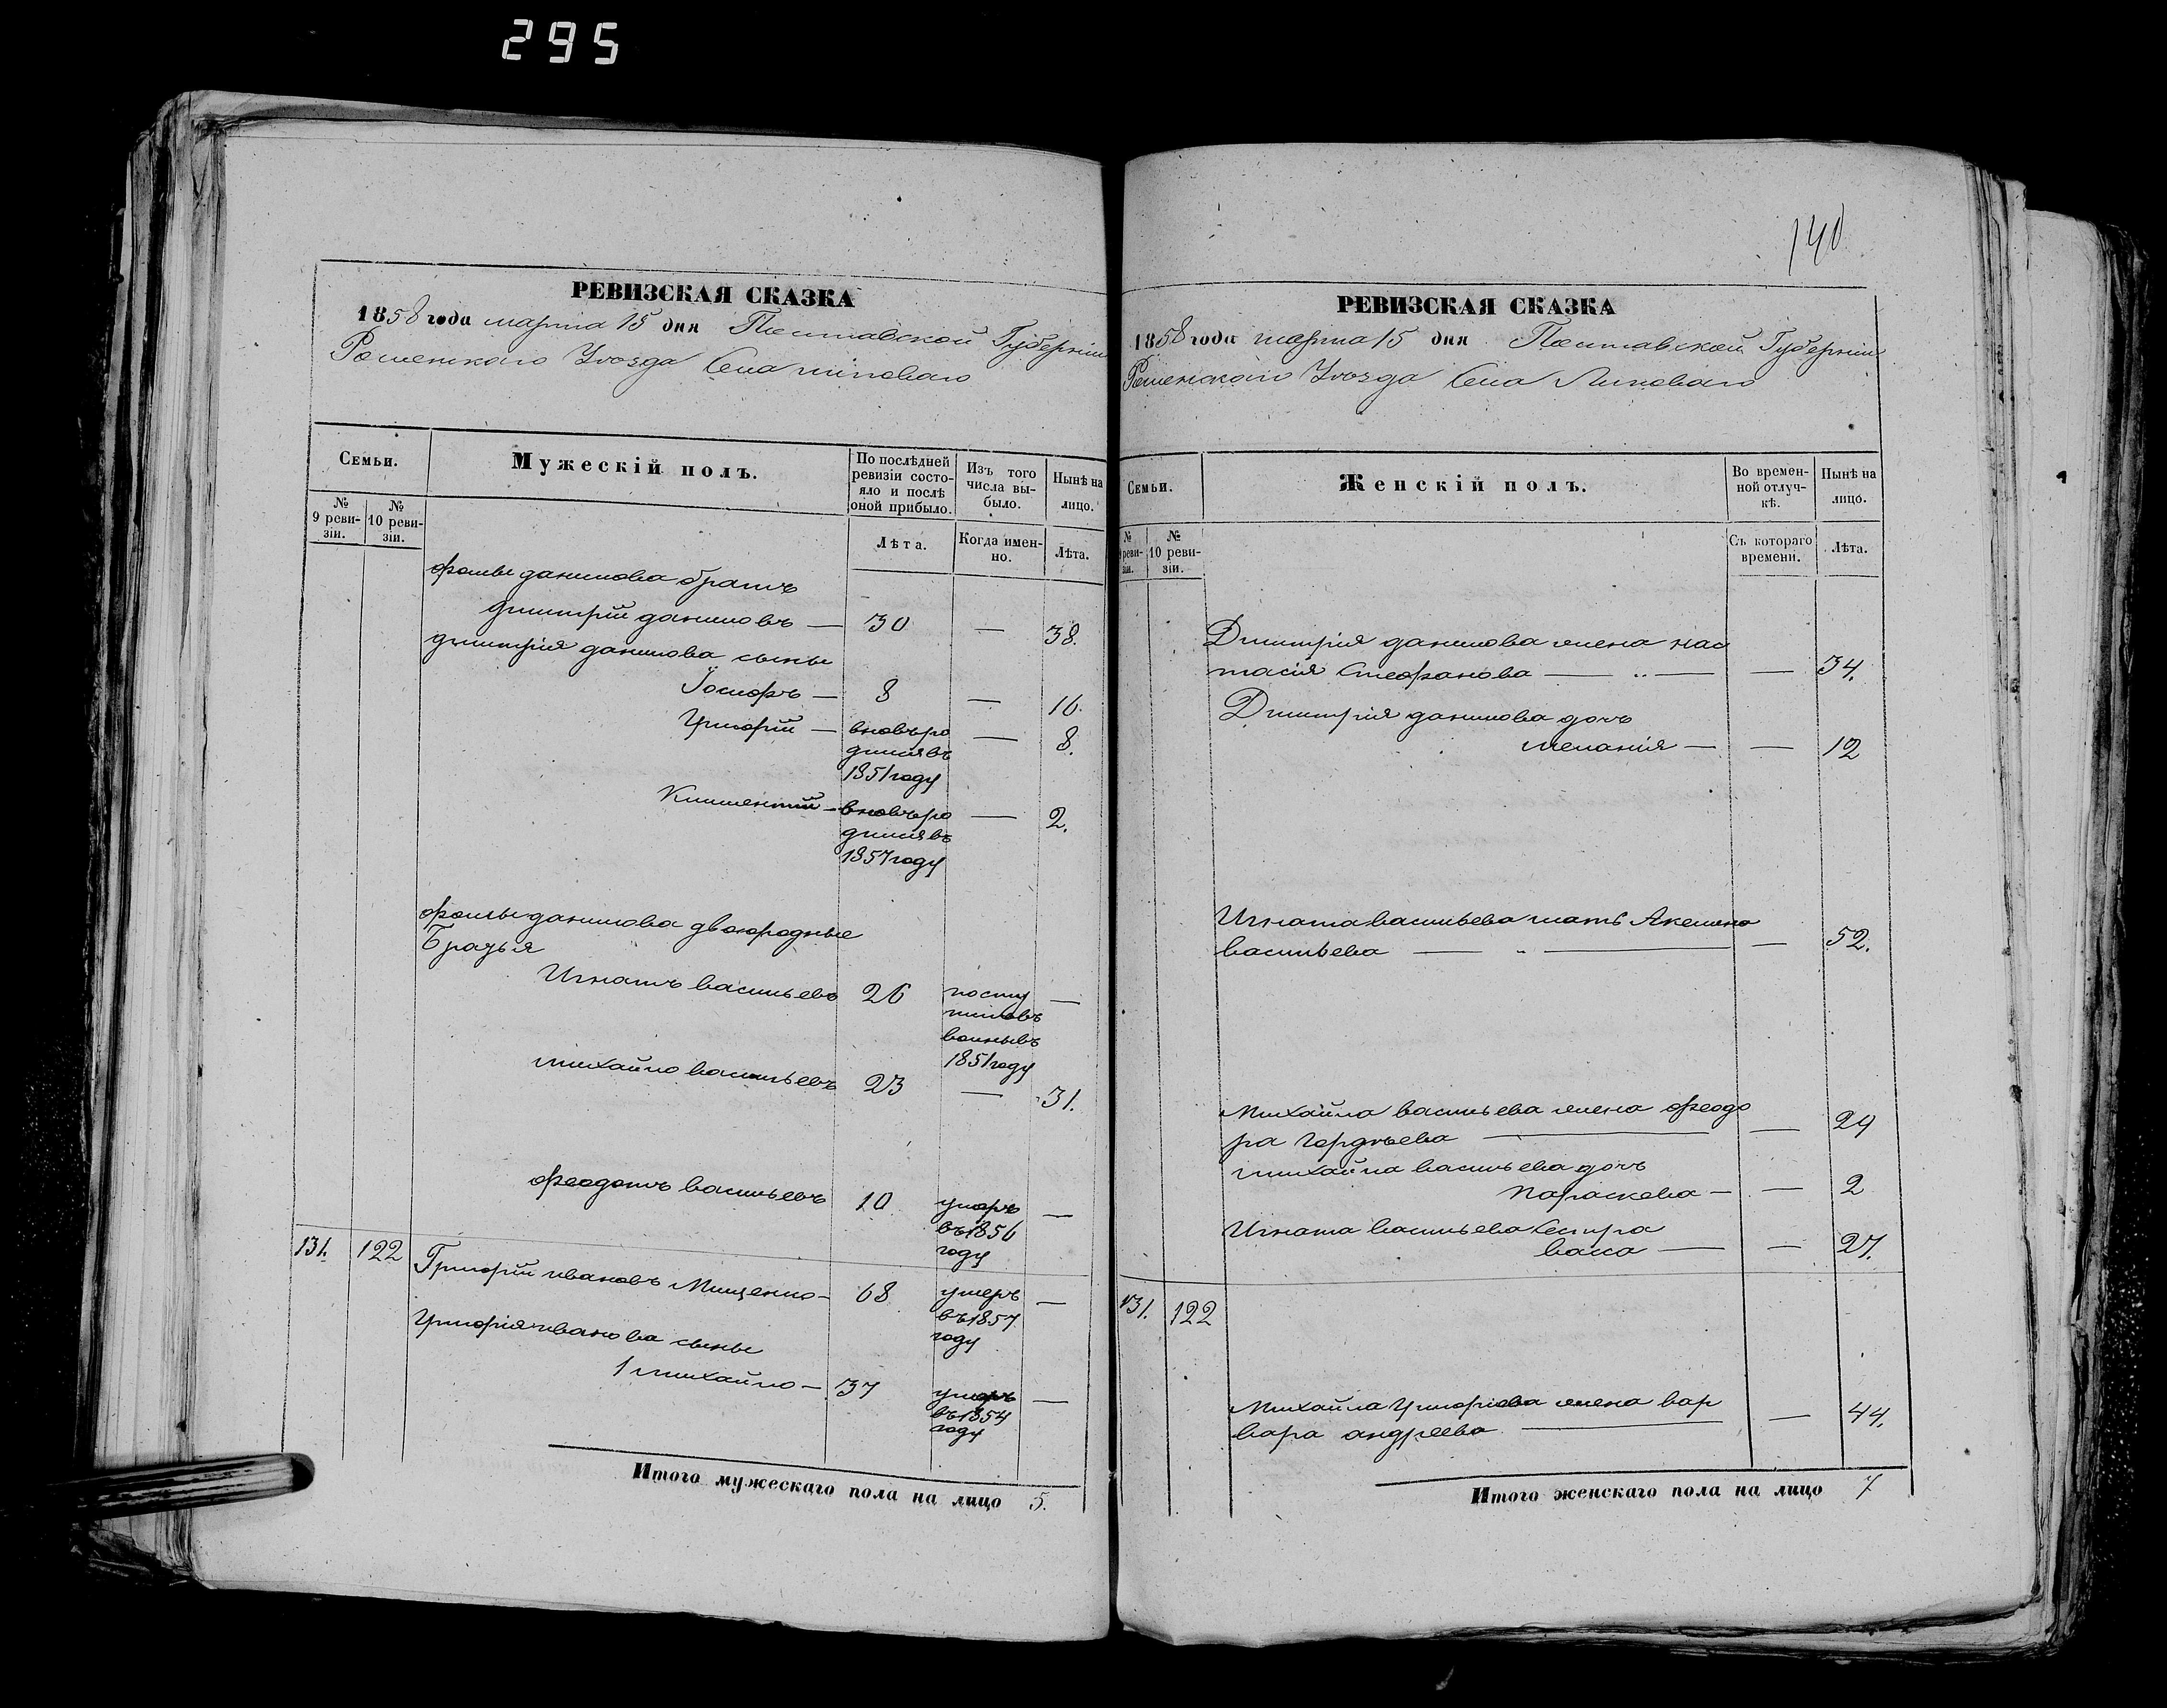 295
РЕВИЗСКАЯ СКАЗКА
1858 года марта 15 дня Полтавской Губерніи
Роменскаго Уѣзда Села Липоваго
Семьи.
Мужескій полъ.
По послѣдней ревизіи состояло и послѣ оной прибыло.
Изъ того числа выбыло.
Нынѣ на лицо.
№ 9 ревизіи.
№ 10 ревизіи.
Лѣта.
Когда именно.
Лѣта.
Фомы данилова братъ
дмитрій даниловъ — 30 — 38.
дмитрія данилова сыны
Іосифъ — 8 — 16.
Григорій — вновь ро — 8.
дился въ
1851 году
Климентій — вновь ро — 2.
дился въ
1857 году
Фомы данилова двоюродные
Братья
Игнатъ васильевъ 26 посту —
пилъ въ
1851 году
михайло васильевъ 23 — 31.
Феодотъ васильевъ 10 умеръ —
въ 1856
году
131. 122 Григорій ивановъ Мищенко — 68 умеръ —
въ 1857
году
Григорія иванова сыны
1 михайло — 37 умеръ —
въ 1854
году
Итого мужескаго пола на лицо 5.
140
РЕВИЗСКАЯ СКАЗКА
1858 года марта 15 дня Полтавской Губерніи
Роменскаго Уѣзда Села Липоваго
Семьи.
Женскій полъ.
Во временной отлучкѣ.
Нынѣ на лицо.
№ реви-зіи.
№ 10 ревизіи.
Съ котораго времени.
Лѣта.
Дмитрія данилова жена нас
тасія Стефанова — — 34.
Дмитрія данилова дочь
меланія — — 12
Игната васильева мать Акелина
васильева — — 52.
Михайла васильева жена феодо
ра Гордѣева — — 24
михайла васильева дочь
Параскева — — 2
Игната васильева Сестра
васса — — 27.
131. 122
Михайла Григорьева жена вар
вара андреева — — 44.
Итого женскаго пола на лицо 7